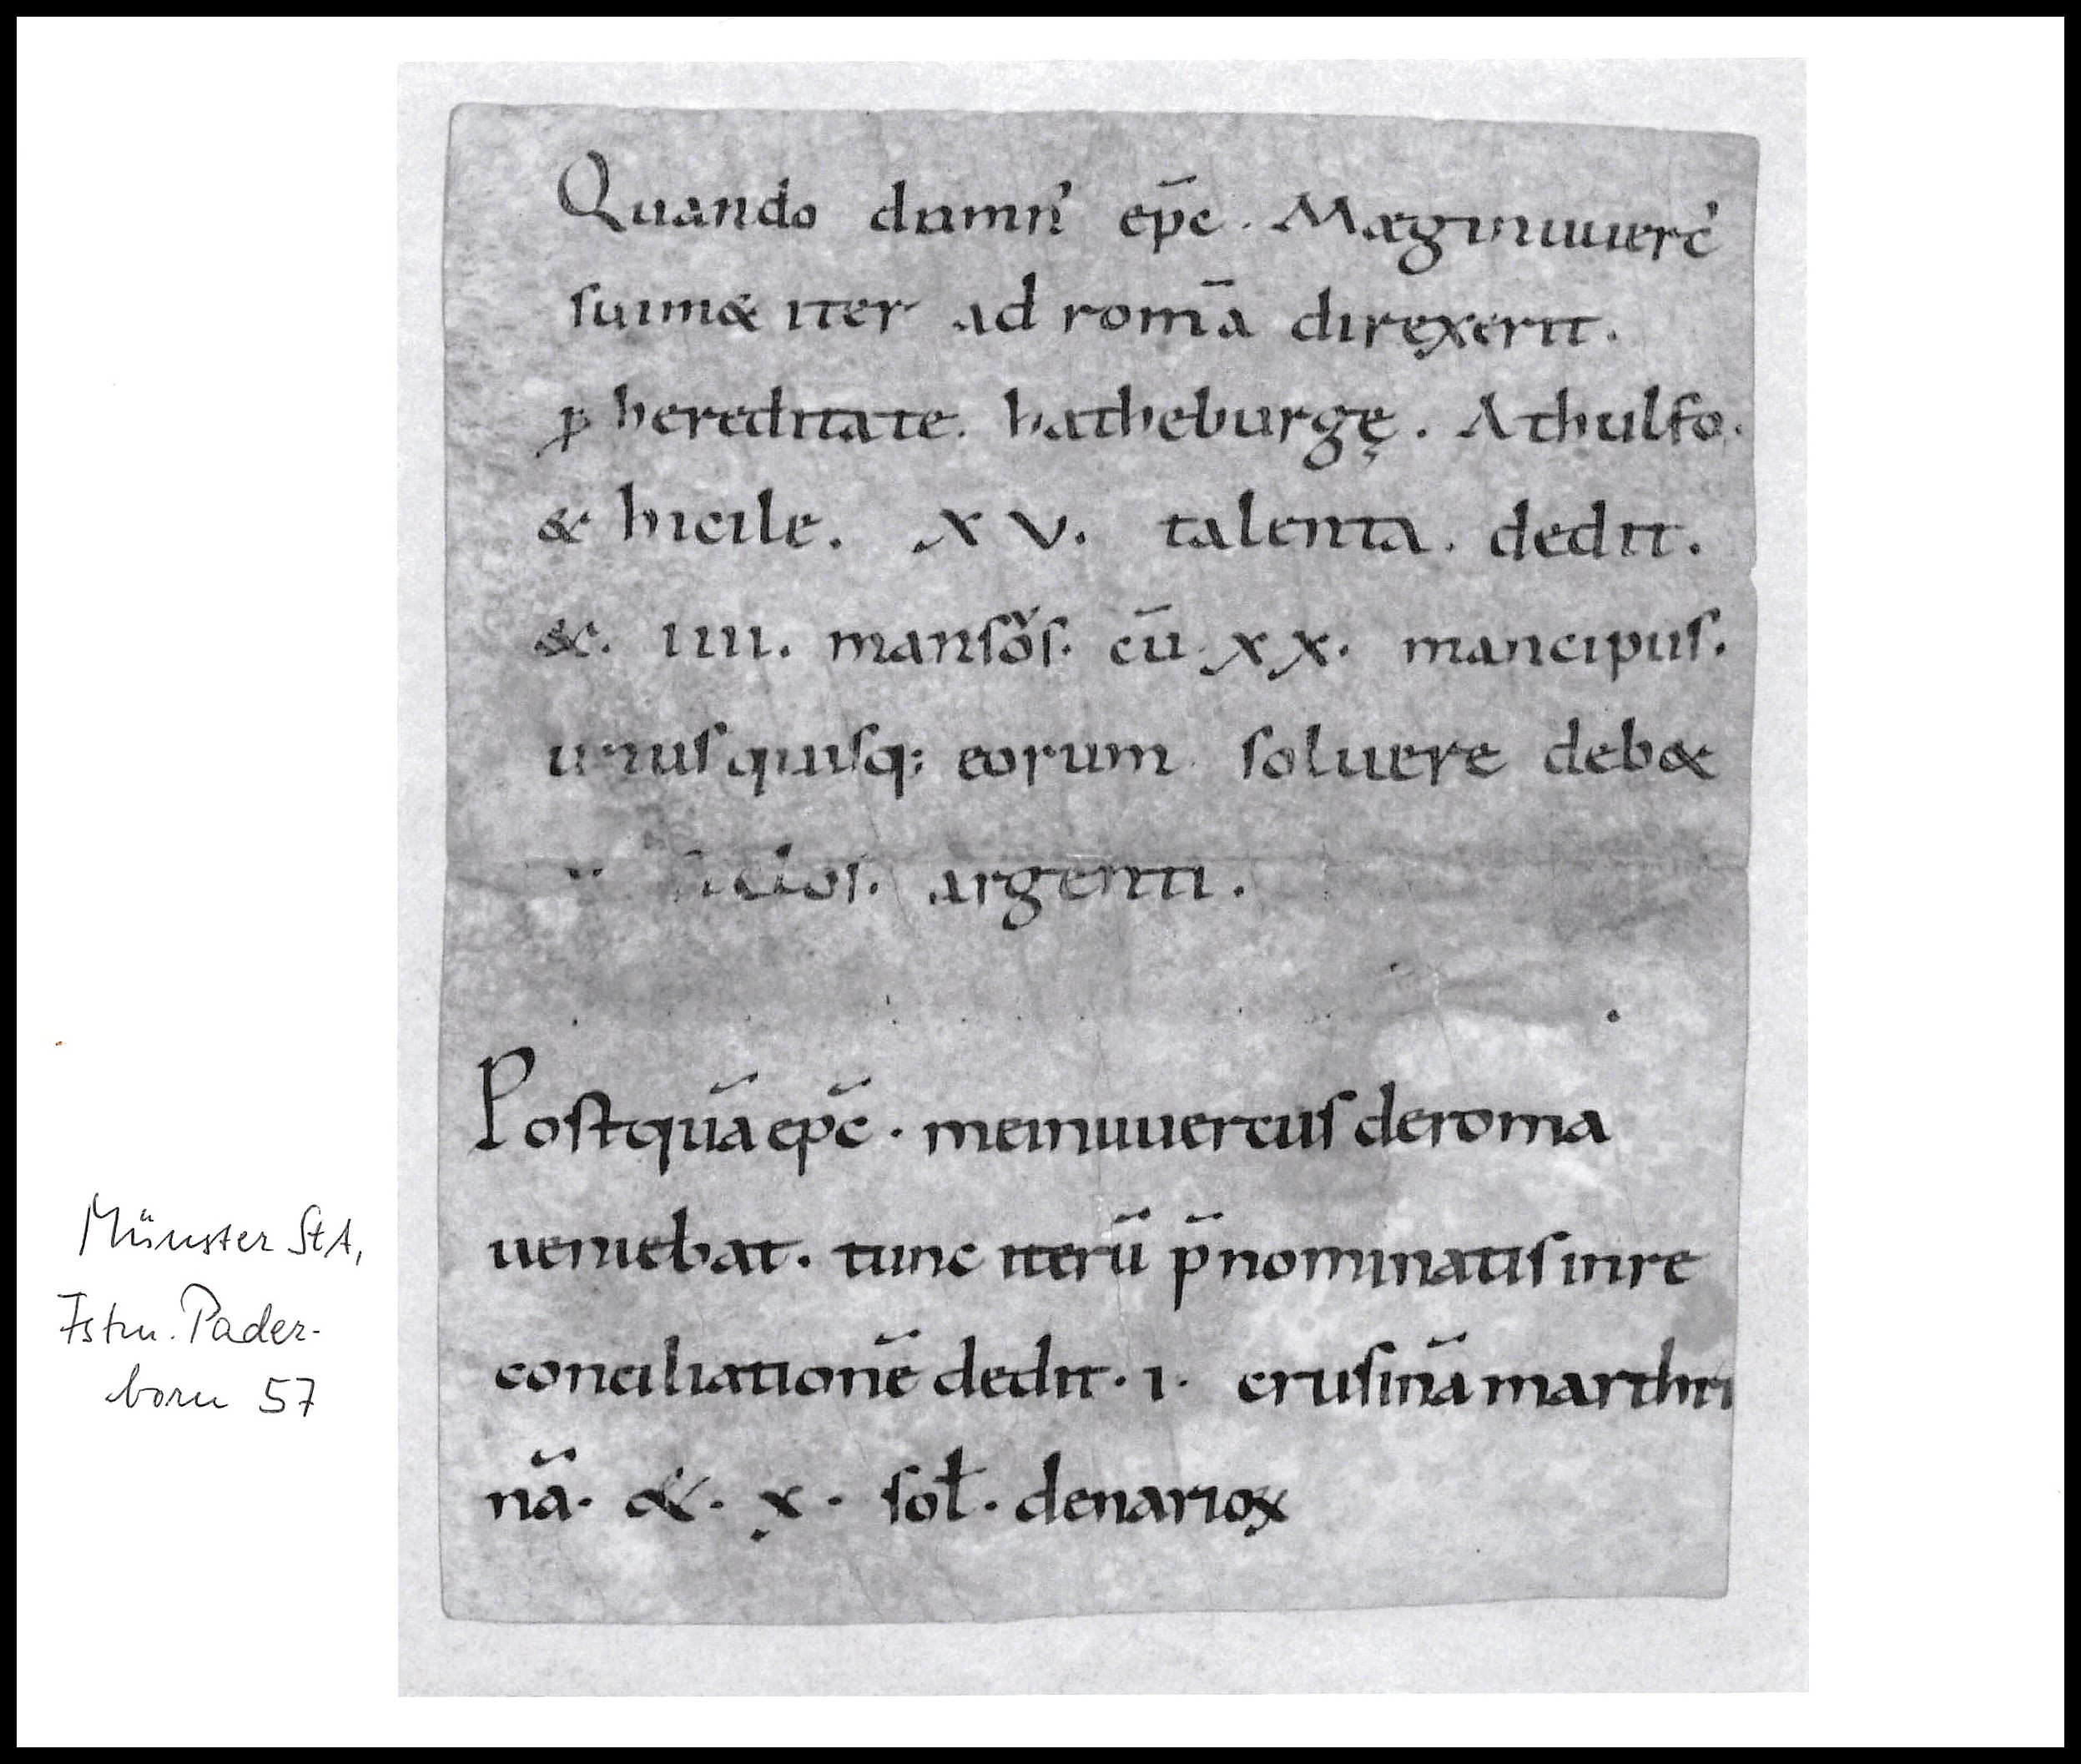 Quando domn' ep̄c. Maginuuerc'
suim& iter ad romā direxerit.
ꝓ hereditate. hatheburgę. Athulfo.
& hicile. XV. talenta. dedit.
&. IIII. mansos. cū. XX. mancipiis.
unusquisq; eorum soluere deb&
argenti.
Postquā ep̄c. meinuuercus de roma
ueniebat. tunc iterū p̄nominatis in re
conciliationē dedit. I. crusinā marthri
nā. &. X. soł. denarioꝝ
Münster StA,
Fstm. Pader-
born 57